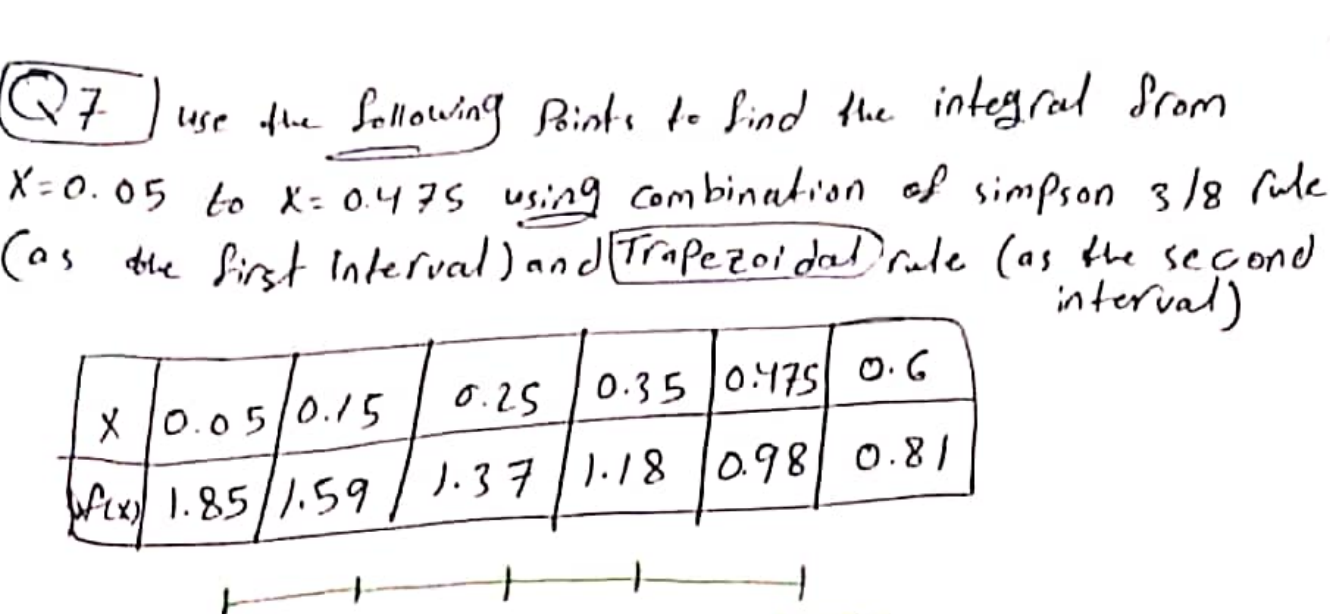 Q7 use the following Points to find the integral from
X=0.05 to X=0.475 using combination of simpson 3/8 rule
(as the first interval) and Trapezoidal rule (as the second
interval)
X 0.05 0.15 0.25 0.35 0.475 0.6
f(x) 1.85 1.59 1.37 1.18 0.98 0.81